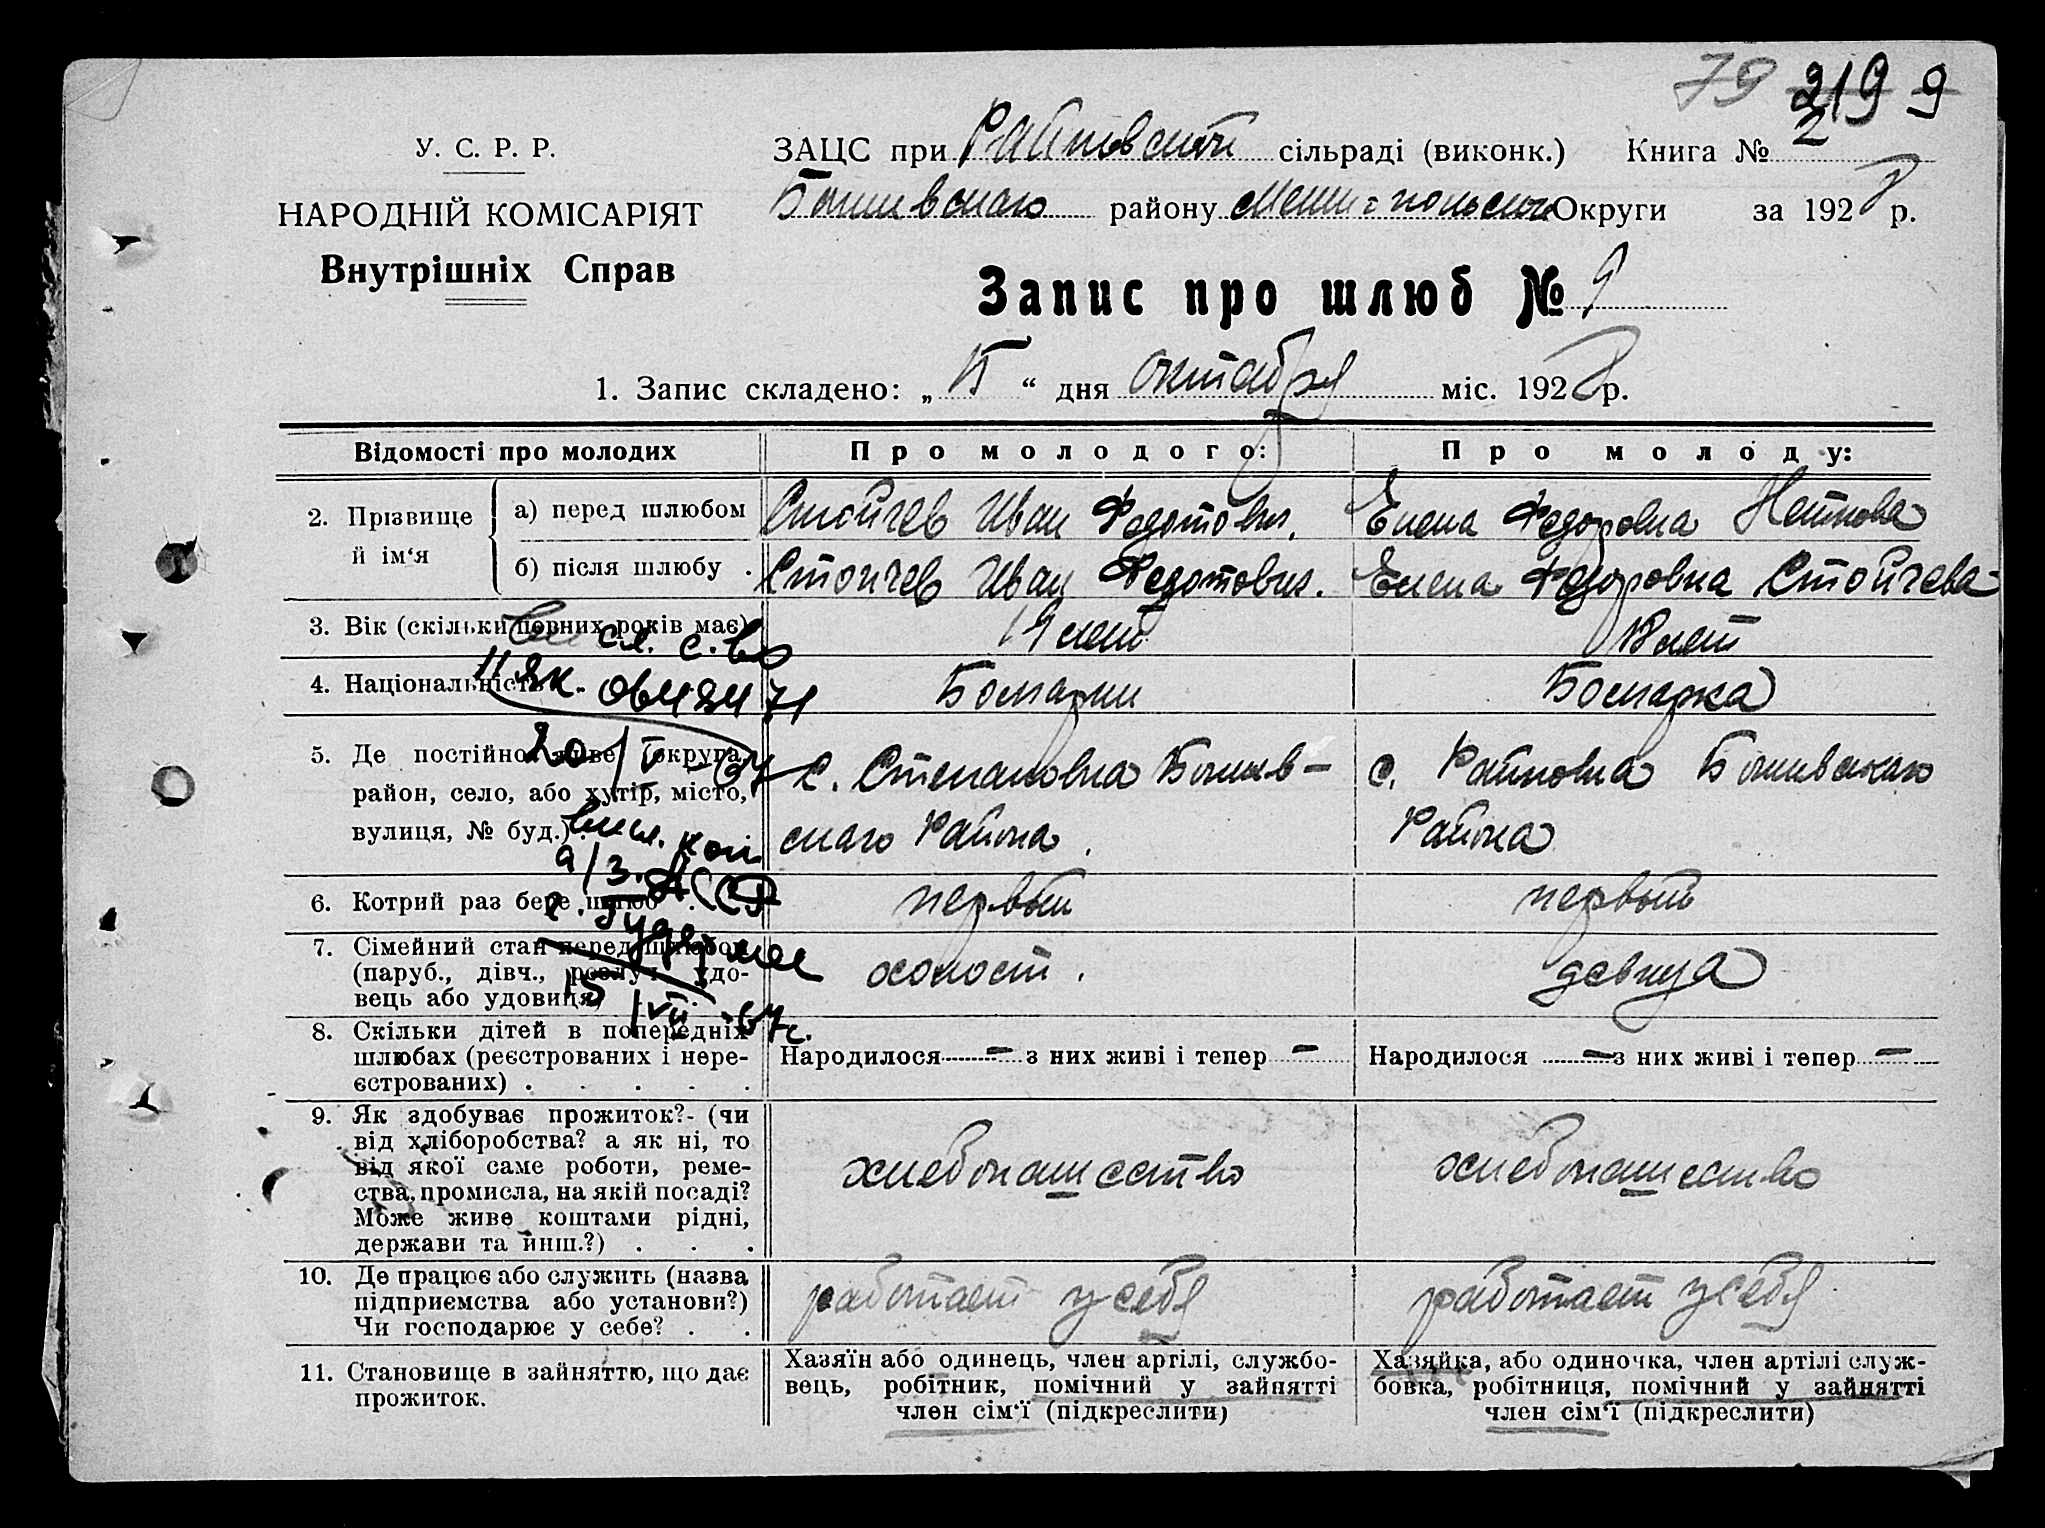 79 219 9
У. С. Р. Р.
НАРОДНІЙ КОМІСАРІЯТ
Внутрішніх Справ
ЗАЦС при Райновской сільраді (виконк.) Книга № 2
району Округи за 1928 р.
Запис про шлюб № 9
1. Запис складено: „ “ дня октября міс. 1928 р.
Відомості про молодих
Про молодого:
Про молоду:
2. Прізвище й ім‘я
а) перед шлюбом
Стойчев Иван Федотович.
Елена Федоровна Неткова
б) після шлюбу .
Стоичев Иван Федотович.
Елена Федоровна Стойчева
3. Вік (скільки повних років має)
19 лет
18 лет
4. Національність
Болгарин
Болгарка
5. Де постійно живе (округа,
район, село, або хутір, місто,
вулиця, № буд.) .
с. Степановка
скаго Района.
с. Райновка
Района
20/V - 67
6. Котрий раз бере шлюб . .
первый
первый
7. Сімейний стан перед шлюбом
(паруб., дівч., розлуч., удо-
вець або удовиця)
холост.
девица
15/VII - 67 г.
8. Скільки дітей в попередніх
шлюбах (реєстрованих і нере-
єстрованих) . . . . .
Народилося — з них живі і тепер —
Народилося — з них живі і тепер —
9. Як здобуває прожиток?- (чи
від хліборобства? а як ні, то
від якої саме роботи, реме-
ства, промисла, на якій посаді?
Може живе коштами рідні,
держави та йнш.?) . . .
хлебопашество
хлебопашество
10. Де працює або служить (назва
підприємства або установи?)
Чи господарює у себе? . .
работает у себя
работает у себя
11. Становище в зайняттю, що дає
прожиток.
Хазяїн або одинець, член артілі, службо-
вець, робітник, помічний у зайнятті
член сім‘ї (підкреслити)
Хазяйка, або одиночка, член артілі служ-
бовка, робітниця, помічний у зайнятті
член сім‘ї (підкреслити)